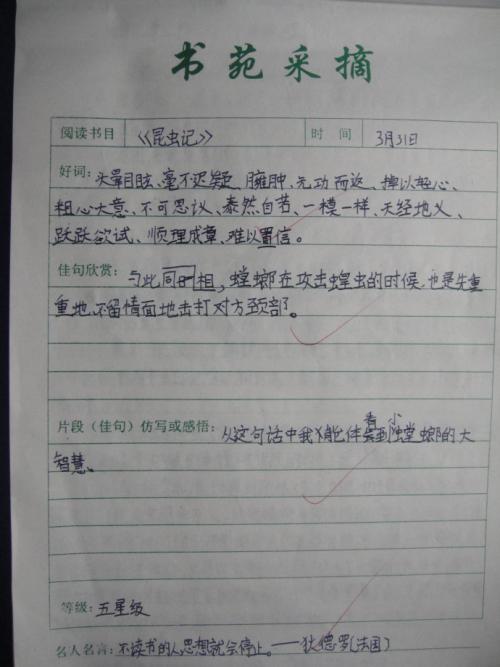 书苑采摘
阅读书目 《昆虫记》 时间 3月31日
好词：头晕目眩、毫不迟疑、臃肿、无功而返、掉以轻心、
粗心大意、不可思议、泰然自若、一模一样、天经地义、
跃跃欲试、顺理成章、难以置信。
佳句欣赏：与此同时相，螳螂在攻击蝗虫的时候，也是先重
重地、不留情面地击打对方颈部。
片段（佳句）仿写或感悟：从这句话中我能体会到小螳螂的大
智慧。
等级：五星级
名人名言：不读书的人思想就会停止。——狄德罗（法国）